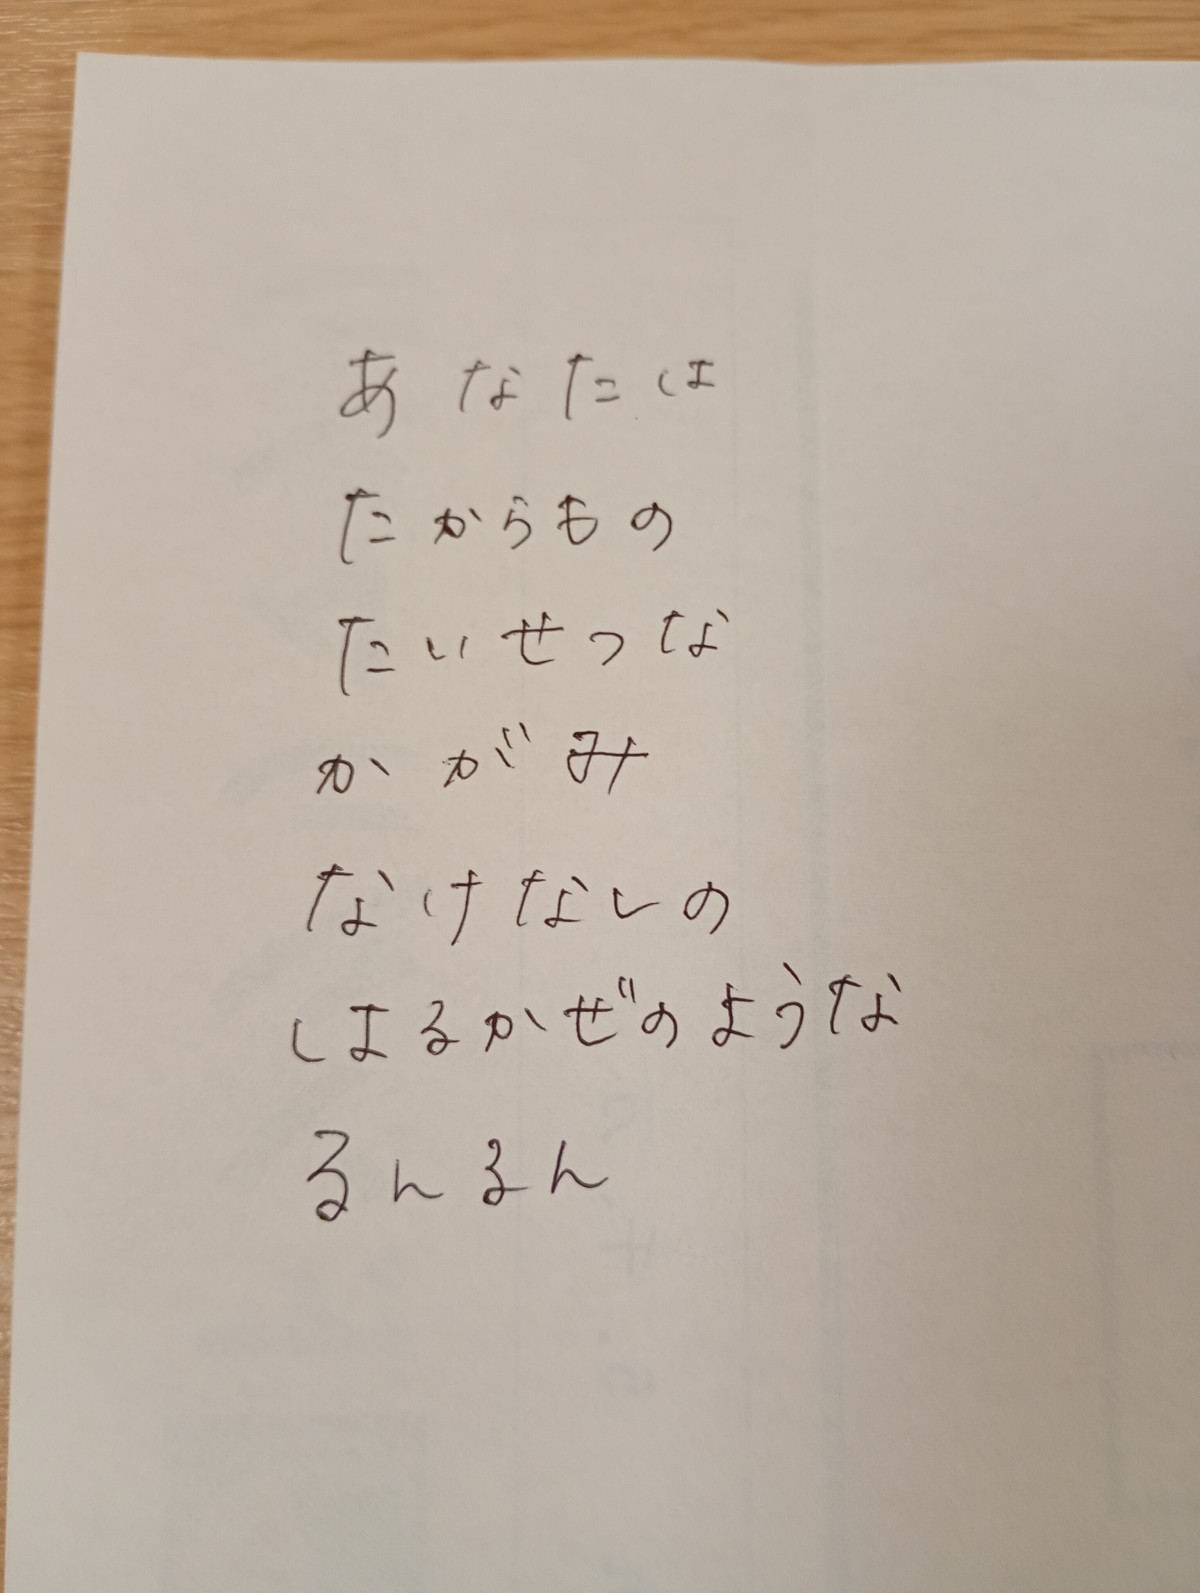 あなたは
たからもの
たいせつな
かがみ
なけなしの
はるかぜのような
るんるん